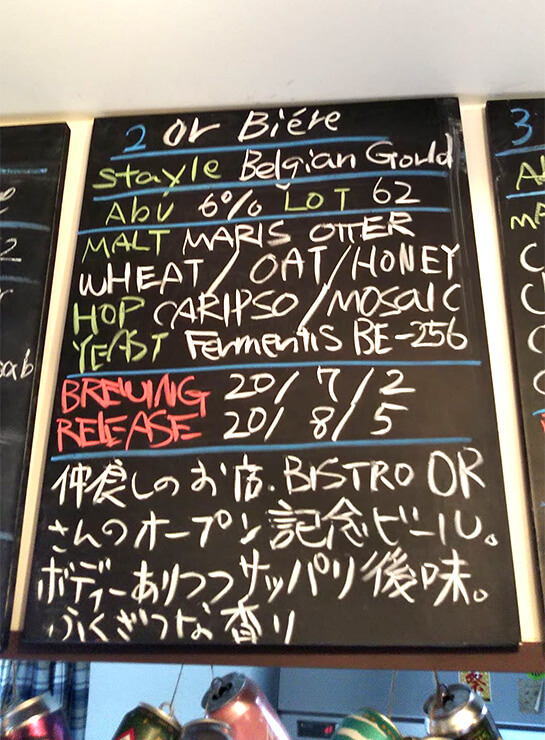 2 Or Biére
Stayle Belgian Gould
Abv 6% LOT 62
MALT MARIS OTTER
WHEAT/OAT/HONEY
HOP CARIPSO/MOSAIC
YEAST Fermentis BE-256
BREWING 20/7/2
RELEASE 20/8/5
仲良しのお店.BISTRO OR
さんのオープン記念ビール。
ボディーありつつサッパリ後味。
ふくざつな香り
3